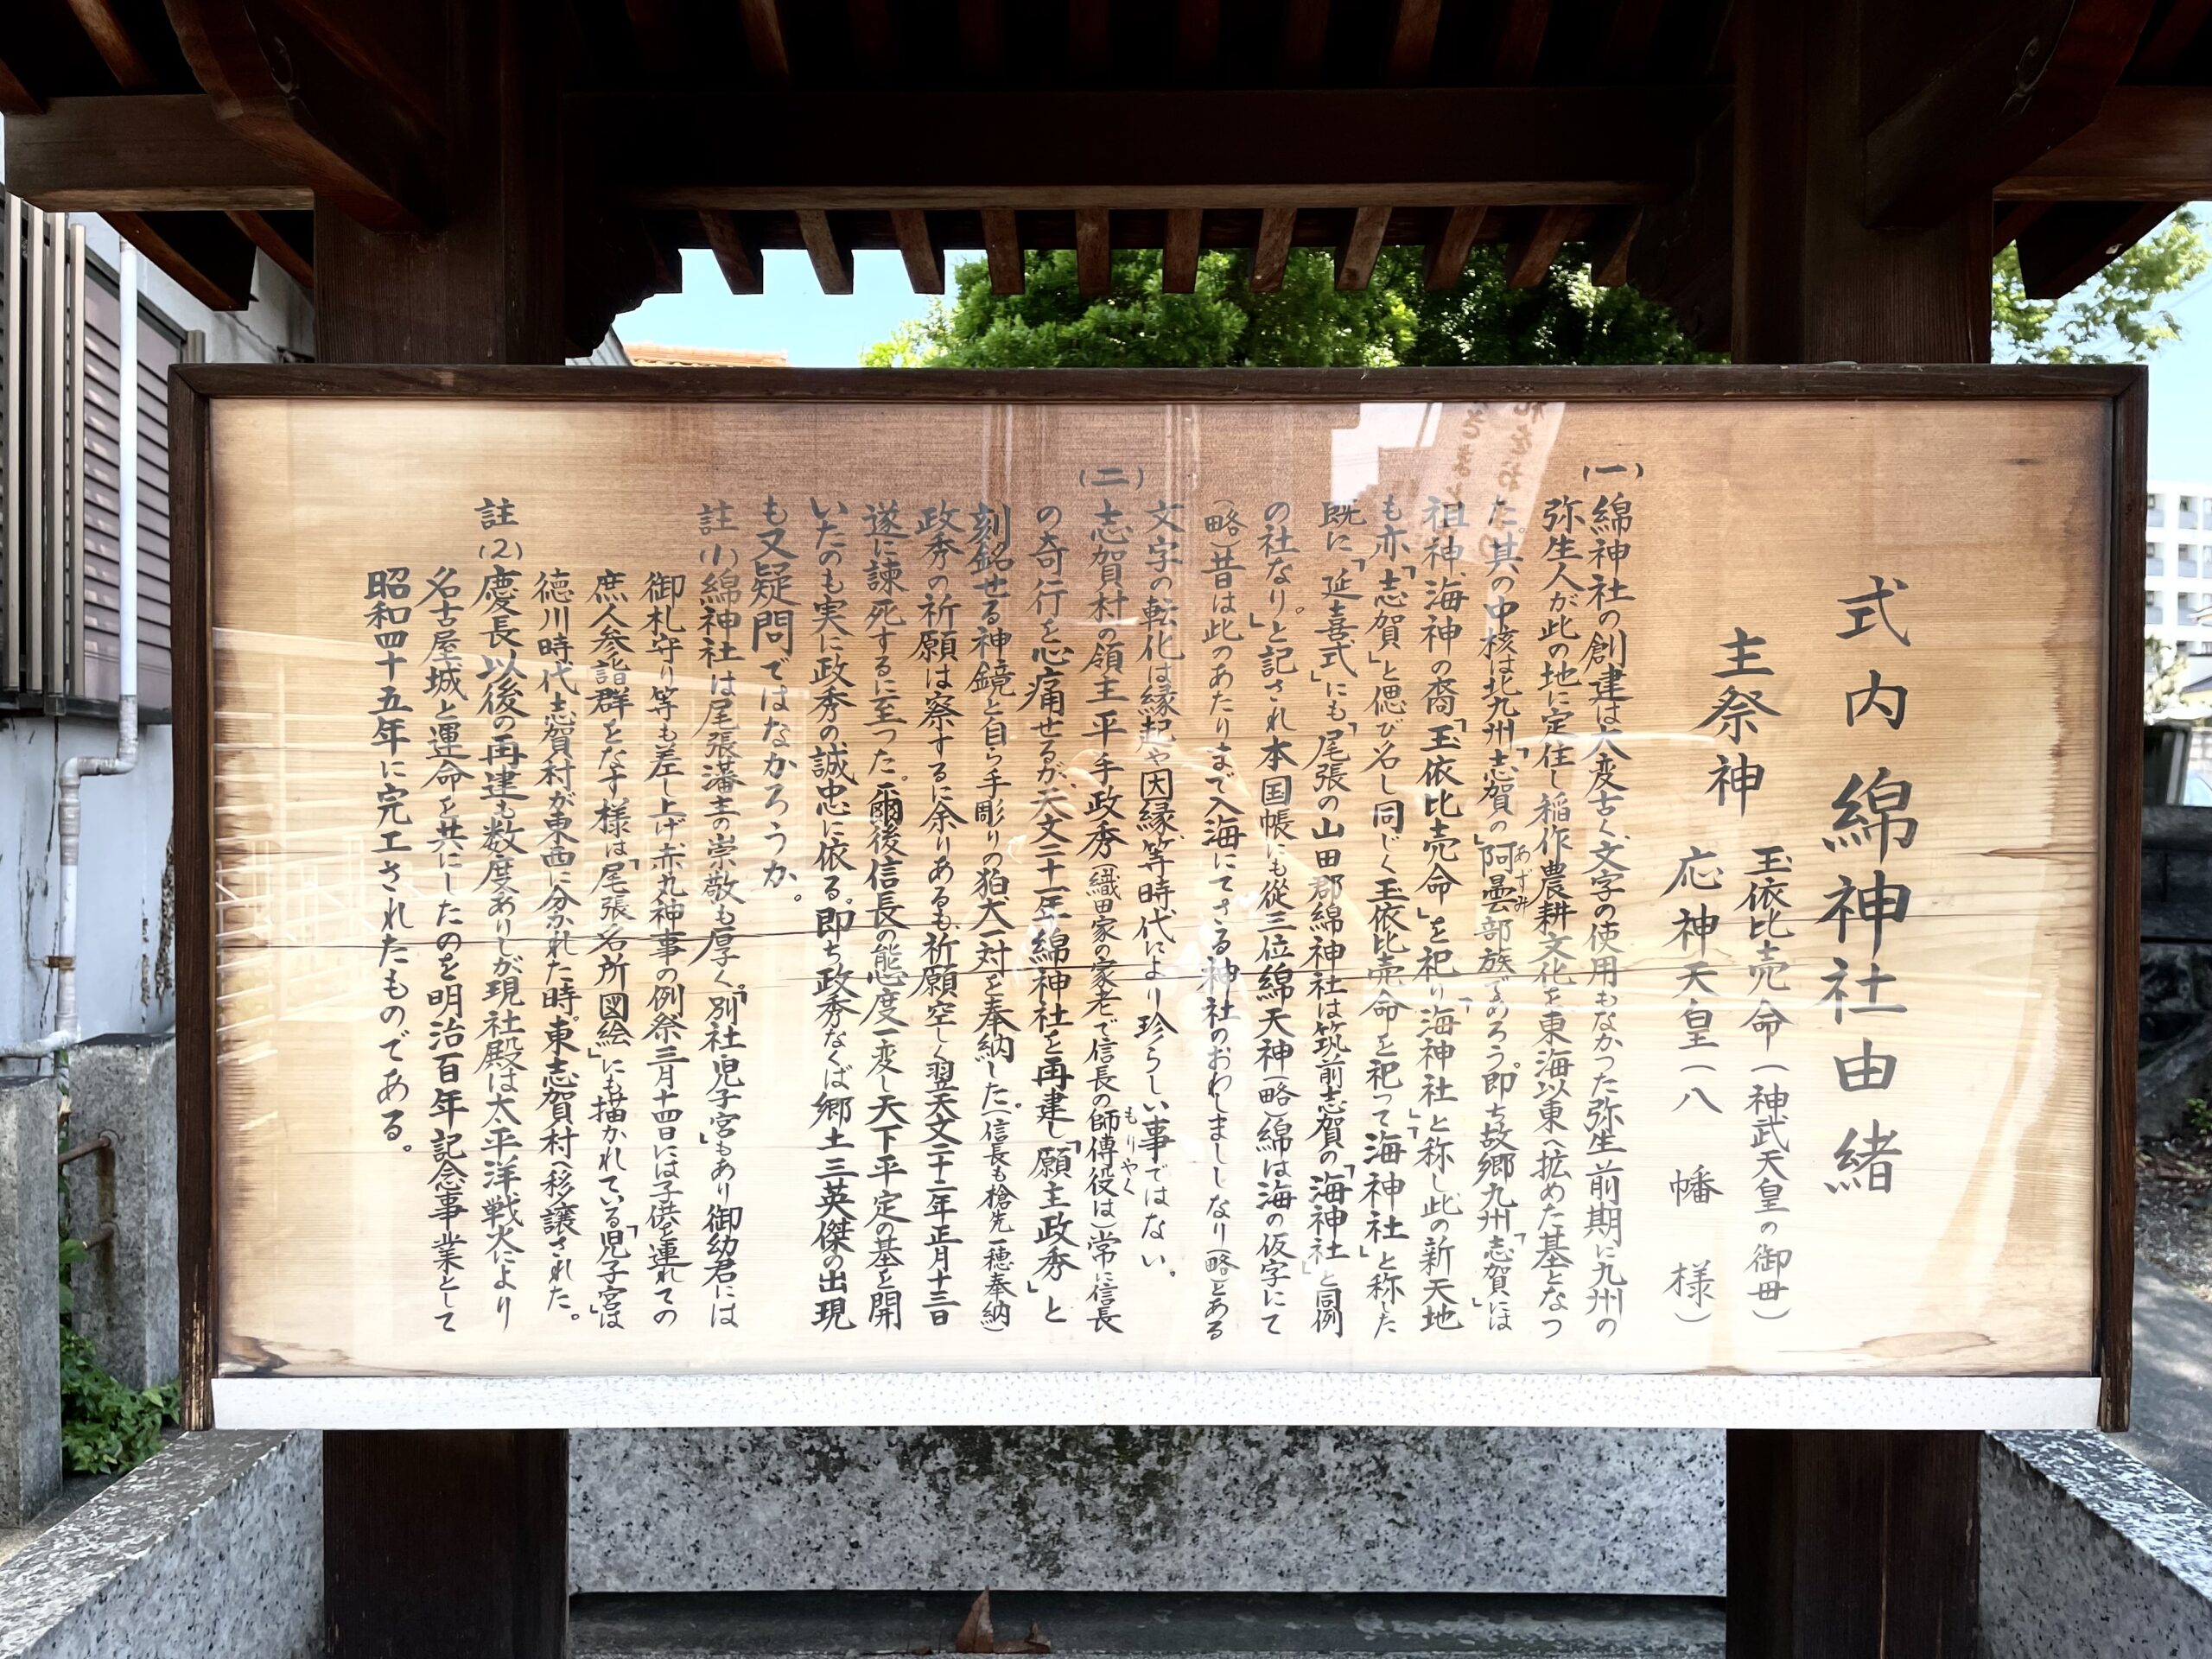 式内綿神社由緒
主祭神
玉依比売命(神武天皇の御母)
応神天皇(八幡様)
(一)
綿神社の創建は大変古く、文字の使用もなかった弥生前期に九州の
弥生人が此の地に定住し稲作農耕文化を東海以東へ拡めた基となつ
た。其の中核は北九州「志賀」の阿曇部族であろう。即ち故郷九州「志賀」には
あずみ
祖神、海神の裔「玉依比売命」を祀り「海神社」と称し此の新天地
も亦「志賀」と偲び名し同じく玉依比売命を祀って「海神社」と称した
既に「延喜式」にも「尾張の山田郡綿神社は筑前志賀の「海神社」と同例
の社なり。」と記され本国帳にも従三位綿天神(略)綿は海の仮字にて
(略)昔は此のあたりまで入海にてさる神社のおわしまししなり(略)とある
文字の転化は縁起や因縁、等時代により珍らしい事ではない。
(二)
志賀村の領主平手政秀(織田家の家老で信長の師傅役は)常に信長
もりやく
の奇行を心痛せるが、天文二十一年綿神社を再建し「願主政秀」と
刻銘せる神鏡と自ら手彫りの狛犬一対を奉納した。(信長も槍先一穂奉納)
政秀の祈願は察するに余りあるも、祈願空しく翌天文二十二年正月十三日
遂に諫死するに至った。爾後信長の態度一変し天下平定の基を開
いたのも実に政秀の誠忠に依る。即ち政秀なくば郷土三英傑の出現
も又疑問ではなかろうか。
註(1)綿神社は尾張藩主の崇敬も厚く。「別社児子宮」もあり御幼君には
御札守り等も差し上げ赤丸神事の例祭三月十四日には子供を連れての
庶人参詣群をなす様は「尾張名所図絵」にも描かれている「児子宮」は
徳川時代志賀村が東西に分かれた時、東志賀村へ移譲された。
註(2)慶長以後の再建も数度ありしが現社殿は太平洋戦火により
名古屋城と運命を共にしたのを明治百年記念事業として
昭和四十五年に完工されたものである。